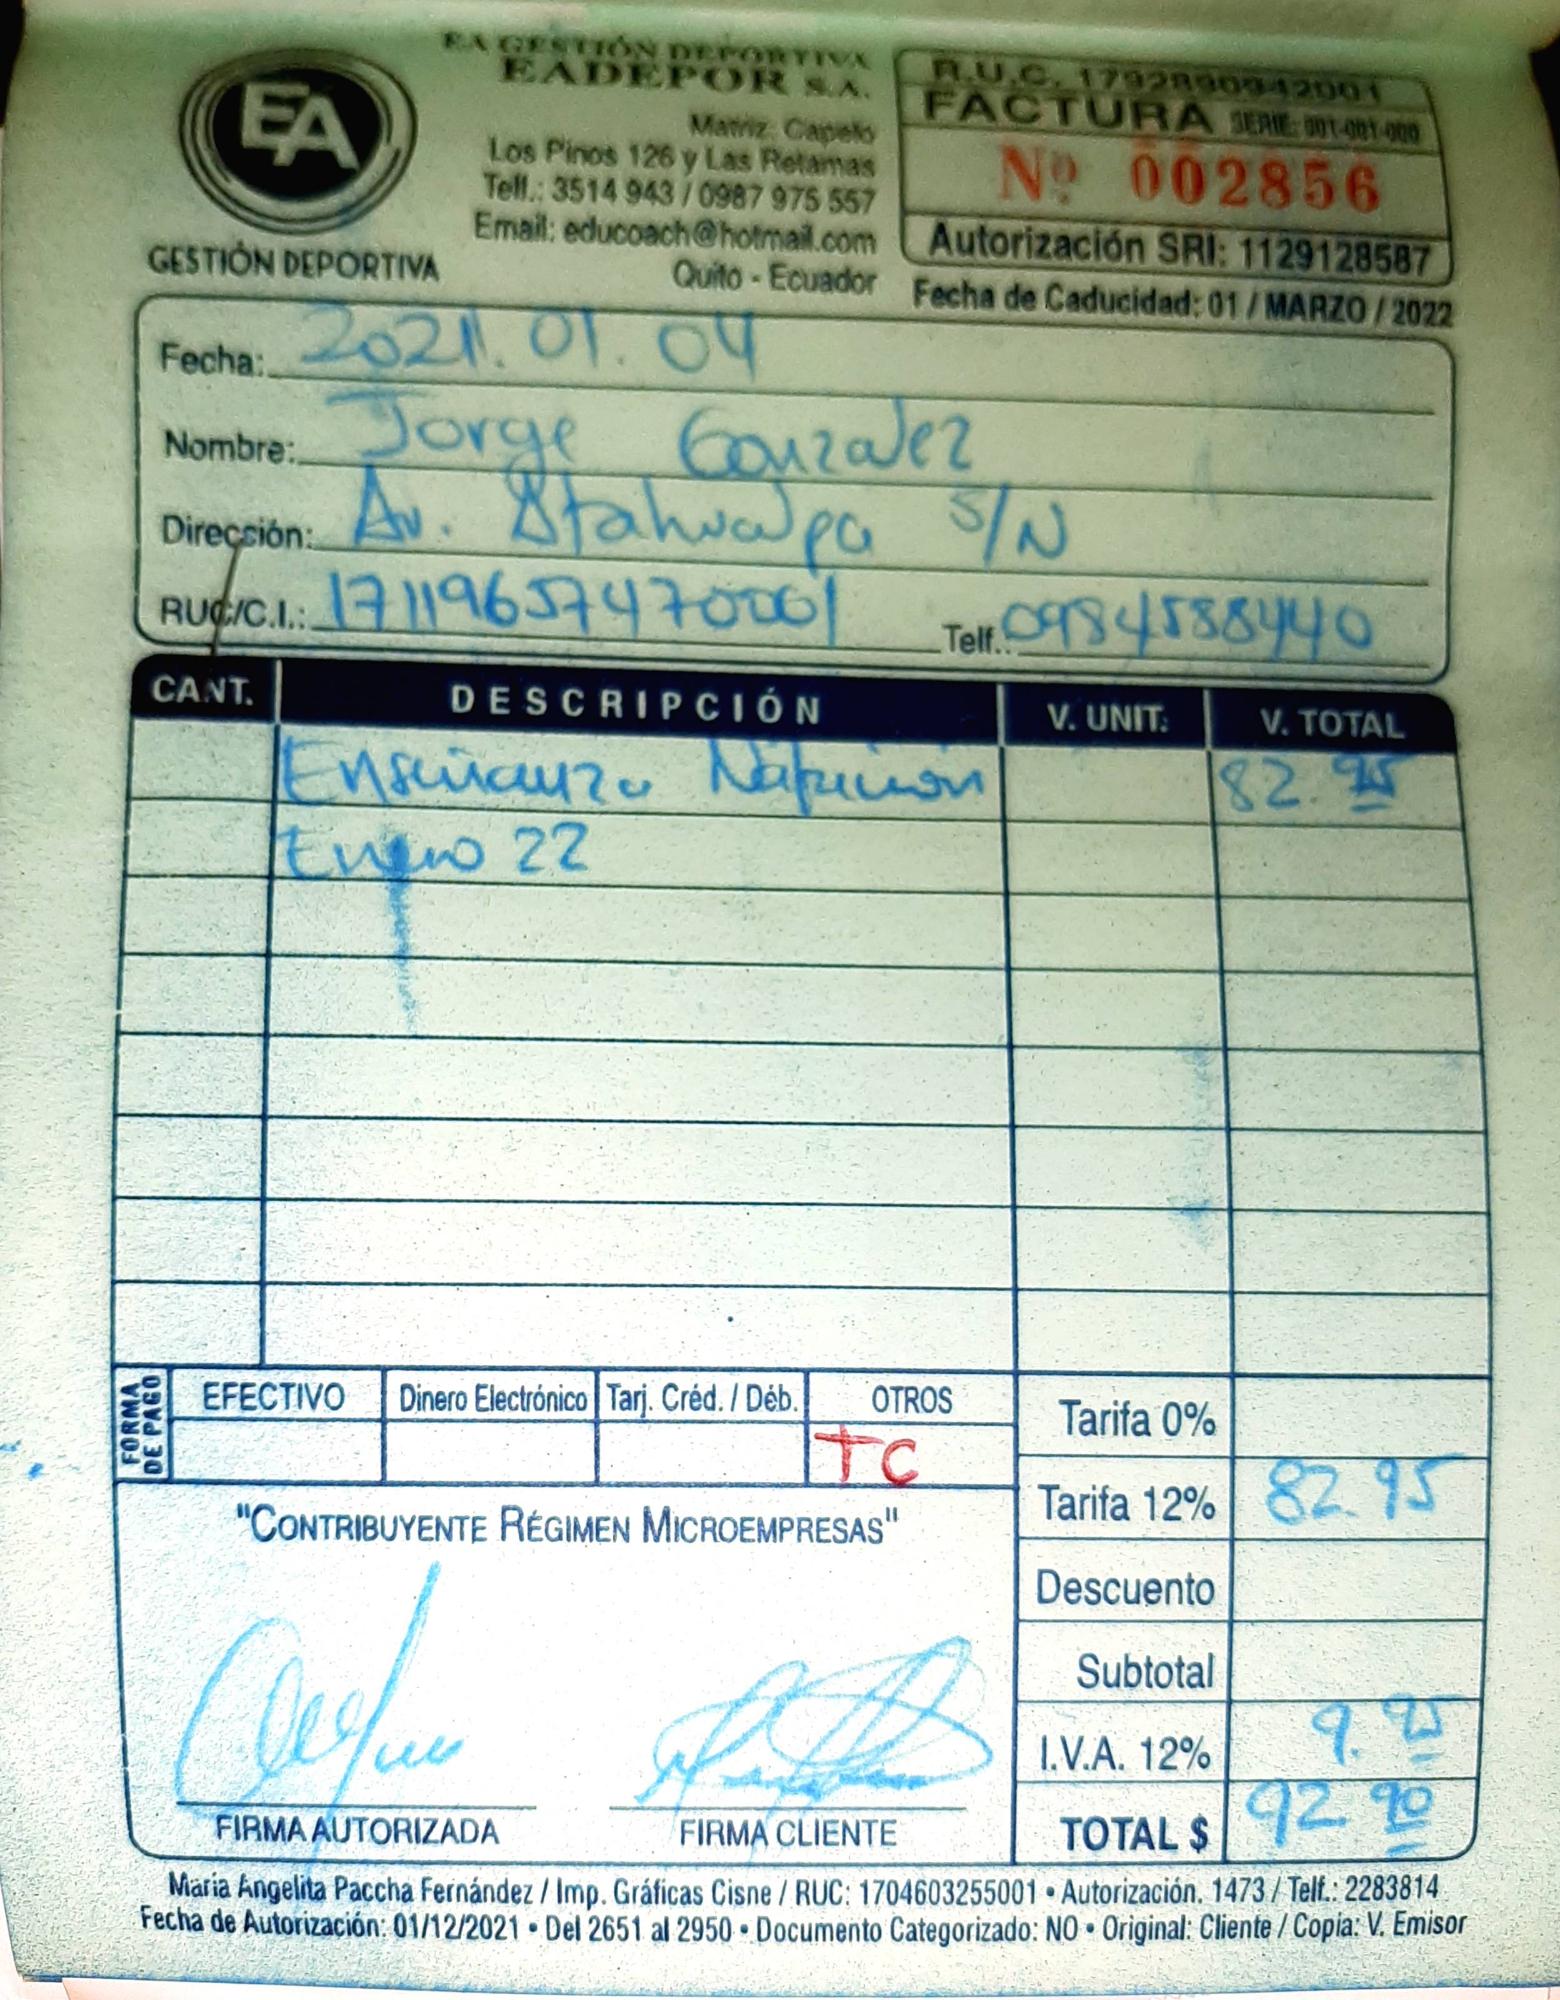 EA
GESTIÓN DEPORTIVA
EA GESTIÓN DEPORTIVA
EADEPOR S.A.
Matriz: Capelo
Los Pinos 126 y Las Retamas
Telf.: 3514 943 / 0987 975 557
Email: educoach@hotmail.com
Quito - Ecuador
R.U.C. 1792890942001
FACTURA SERIE: 001-001-000
Nº 002856
Autorización SRI: 1129128587
Fecha de Caducidad: 01 / MARZO / 2022
Fecha: 2021.01.04
Nombre: Jorge Gonzalez
Dirección: Av. Atahualpa S/N
RUC/C.I.: 17119657470001 Telf.: 0984588440
CANT. DESCRIPCIÓN V. UNIT. V. TOTAL
Enseñanza Natación 82.95
Enero 22
FORMA DE PAGO
EFECTIVO Dinero Electrónico Tarj. Créd. / Déb. OTROS
TC
Tarifa 0%
Tarifa 12% 82.95
Descuento
Subtotal
I.V.A. 12% 9.95
TOTAL $ 92.90
"CONTRIBUYENTE RÉGIMEN MICROEMPRESAS"
FIRMA AUTORIZADA FIRMA CLIENTE
María Angelita Paccha Fernández / Imp. Gráficas Cisne / RUC: 1704603255001 • Autorización. 1473 / Telf.: 2283814
Fecha de Autorización: 01/12/2021 • Del 2651 al 2950 • Documento Categorizado: NO • Original: Cliente / Copia: V. Emisor